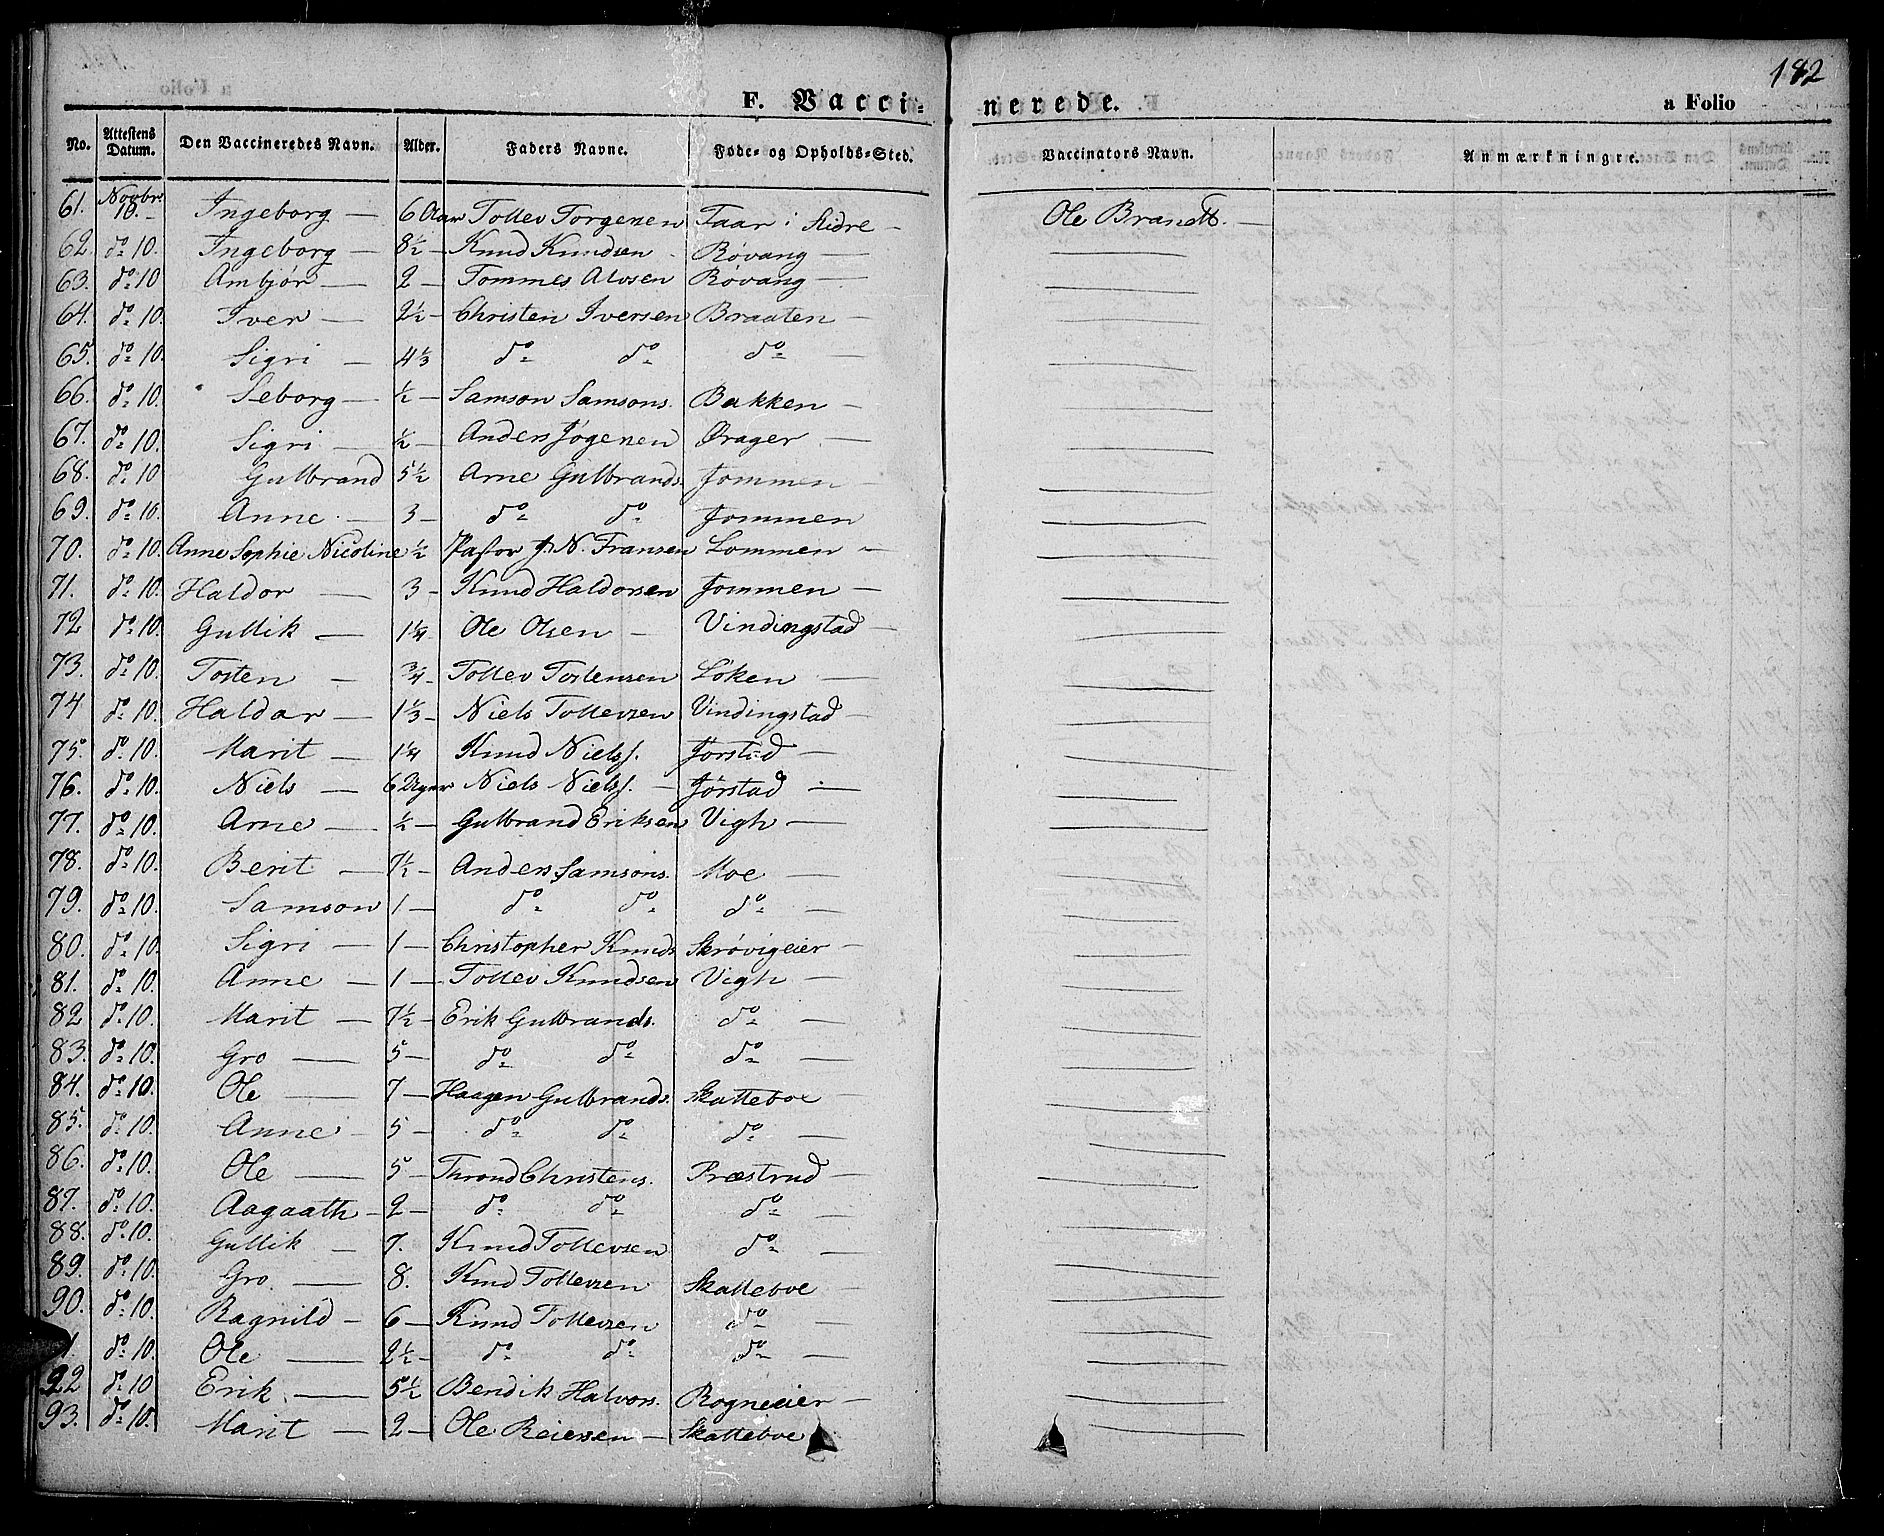 182
F. Vacci- nerede. a Folio
No. Attestens Datum. Den Vaccineredes Navn. Alder. Faders Navne. Føde- og Opholds-Sted. Vaccinators Navn. Anmærkninger.
61. Novbr. 10. Ingeborg — 6 Aar Tollev Torgenen Faar i Slidre — Ole Brandt. —
62. do 10. Ingeborg — 8½ — Knud Knudsen Røvang —
63. do 10 Ambjør — 2 — Tommes Alvsen Røvang —
64. do 10. Iver — 2½ — Christen Iversen Braaten —
65. do 10. Sigri — 4⅓ do do do —
66. do 10. Seborg — ½ — Samson Samsons. Bakken —
67. do 10. Sigri — ½ — Anders Jøgenen Ørager —
68. do 10 Gulbrand 5½ Arne Gulbrands. Jommen —
69. do 10. Anne — 3 — do do Jommen
70. do 10. Anne Sophie Nicoline ½ Pastor J. N. Fransen Lommen —
71. do 10. Haldor — 3 — Knud Haldorsen Jommen —
72 do 10. Gullik — 1¼ Ole Olsen — Vindingstad —
73. do 10. Tosten — ¾ — Tollev Tostensen Løken —
74 do 10. Haldor — 1⅓ — Niels Tollevsen Vindingstad —
75. do 10. Marit — 1¼ Knud Nielss. Jørstad —
76. do 10. Niels — 6 Uger Niels Nielss. — Jørstad —
77. do 10. Arne — ½ — Gulbrand Eriksen Vigh —
78. do 10. Berit — 7½ — Anders Samsons. Moe —
79. do 10. Samson 1 — do do do —
80. do 10. Sigri — 1 — Christopher Knuds. Skrøvigeier —
81. do 10. Anne — 1 — Tollev Knudsen Vigh —
82 do 10. Marit — 7½ — Erik Gulbrands. do —
83. do 10. Gro — 5 — do do do —
84. do 10. Ole — 7 — Haagen Gulbrands. Skatteboe —
85. do 10. Anne — 5 — do do do —
86. do 10. Ole — 5 — Thrond Christens. Præstrud —
87. do 10. Aagaath — 2 — do do do —
88. do 10. Gullik — 7. Knud Tollevsen do —
89. do 10. Gro — 8. Knud Tollevsen Skatteboe —
90. do 10. Ragnild — 6 — Knud Tollevsen do —
1. do 10. Ole — 2½ — do do do —
92 do 10 Erik — 5½ Bendik Halvors. Rogneeier —
93. do 10. Marit — 2 — Ole Reiersen — Skatteboe